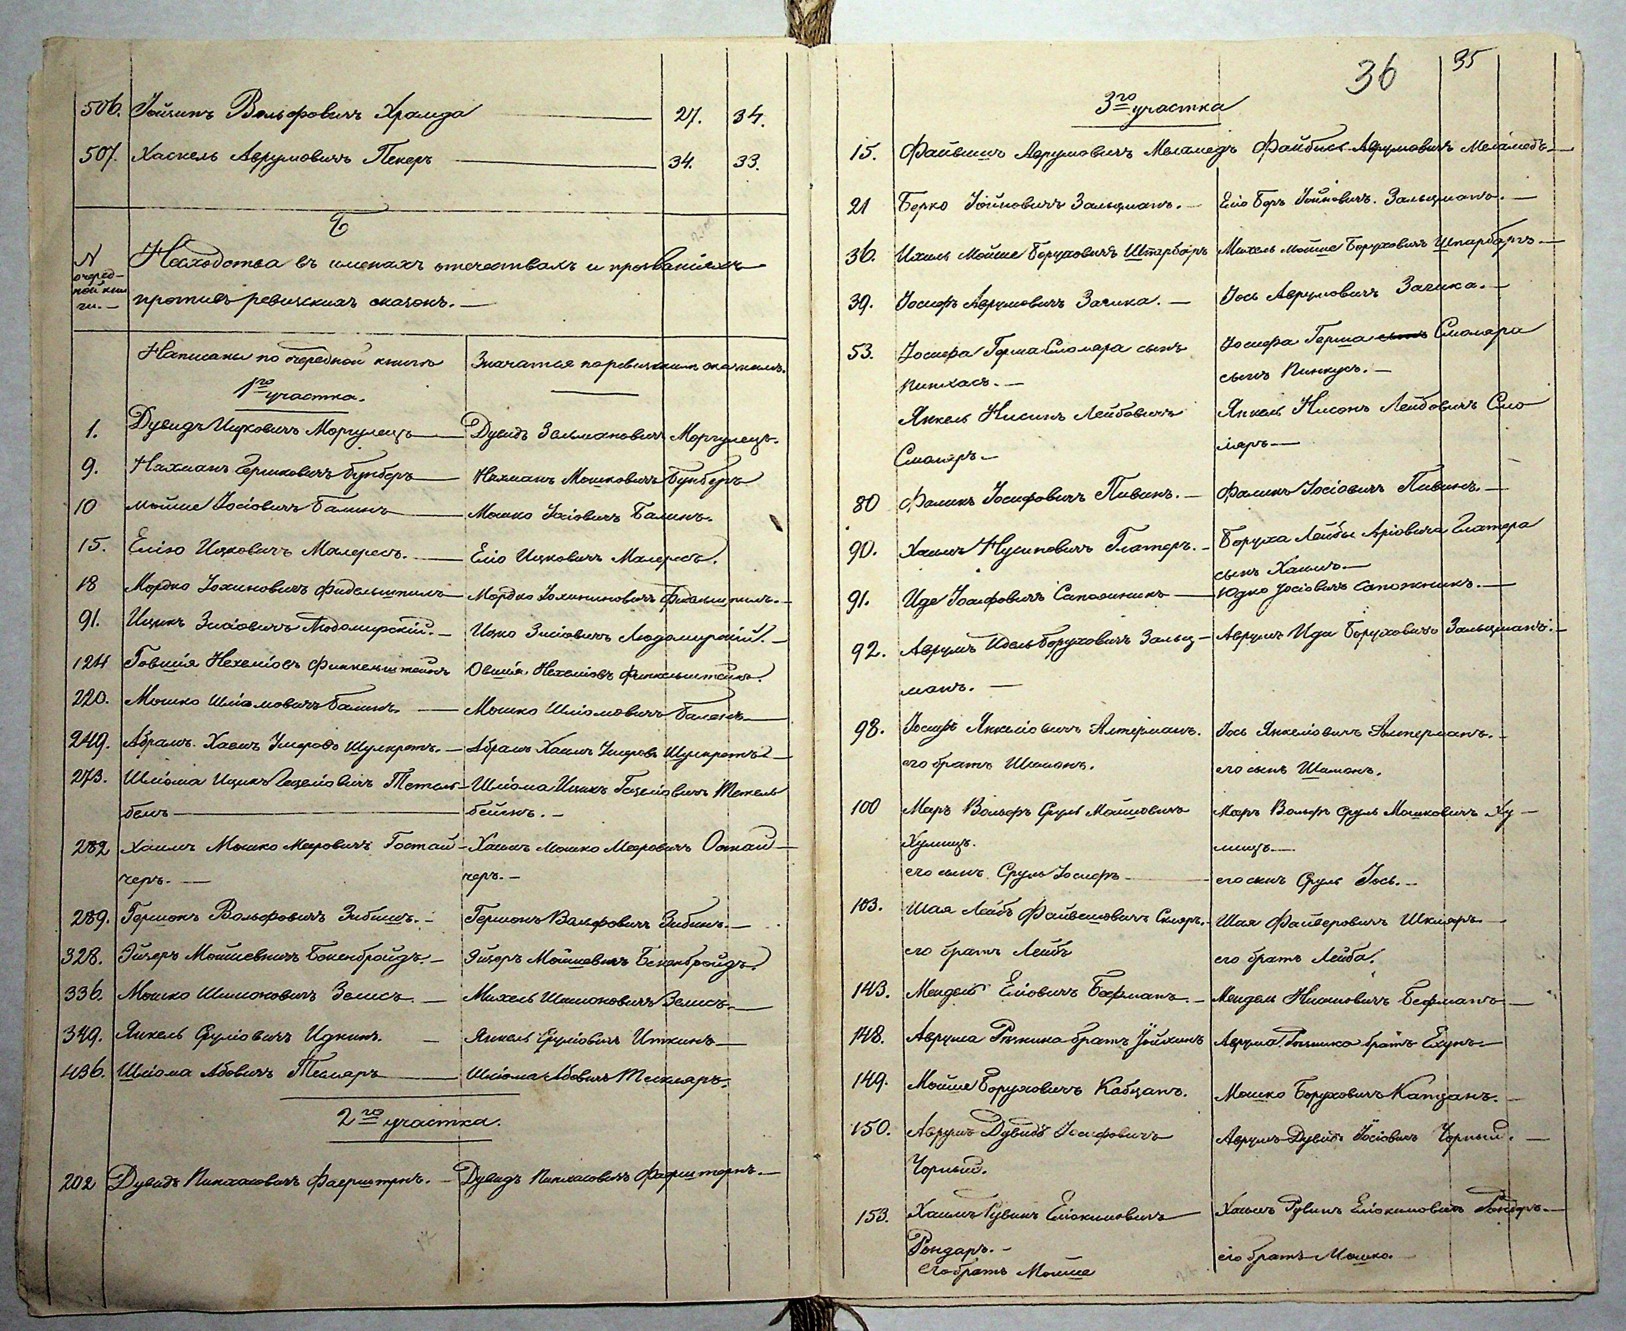 506. Іойнинъ Вольфовичъ Храмда 27. 34.
507. Хаскель Аврумовичъ Пекеръ 34. 33.
Б
N очеред-
ной кни
ги.
Несходства въ именахъ отечествахъ и прозваніяхъ
противъ ревизскихъ сказокъ.
Написаны по очередной книгѣ Значатся по ревизскимъ сказкамъ.
1го участка.
1. Дувидъ Ицковичъ Моргулецъ Дувидъ Зельмановичъ Моргулецъ.
9. Нахманъ Гершковичъ Бунберъ Нахманъ Мошковичъ Бунберъ
10 Мойше Іосіовичъ Балинъ Мошко Іосіовичъ Балинъ.
15. Еліо Ицковичъ Малересъ. Еліо Ицковичъ Малересъ.
18 Мордко Іохиновичъ Фидельштилъ Мордко Іохининовичъ Фидельштилъ.
91. Ицикъ Зисіовичъ Людомирскій. Ицко Зисіовичъ Людомирскій.
124 Говшія Нехеміовъ Финкельштейнъ Овшія Нехеміовъ Финкельштейнъ.
220. Мошко Шліомовичъ Балинъ. Мошко Шліомовичъ Баленъ
249. Абрамъ Хаимъ Умеровъ Шулкротъ. Абрамъ Хаимъ Умеровъ Шулкротъ
273. Шліома Ицикъ Гецеліовичъ Тетель Шліома Ицикъ Гецеліовичъ Тетель
бемъ бейемъ.
282 Хаимъ Мошко Мееровичъ Гостай Хаимъ Мошко Мееровичъ Остай
черъ. черъ.
289. Гершонъ Вольфовичъ Зибишъ. Гершонъ Вольфовичъ Зибинъ.
328. Эйзеръ Мойшевичъ Бокенбройдъ. Эйзеръ Мойшевичъ Бекенбройдъ.
336. Мошко Шимоновичъ Зелисъ. Михель Шимоновичъ Зелисъ.
349. Янкель Сруліовичъ Идкинъ. Янкель Сруліовичъ Иткинъ
436. Шліома Абовичъ Теслеръ Шліома Абовичъ Теслеръ.
2го участка.
202 Дувидъ Пинхасовичъ Фаерштрнъ. Дувидъ Пинхасовичъ Фаерштернъ.
36 35
3го участка
15. Файвишъ Аврумовичъ Меламедъ Файбисъ Аврумовичъ Меламедъ
21 Берко Іойновичъ Зальцманъ. Еліо Беръ Іойновичъ Зальцманъ.
36. Ихиль Мойше Боруховичъ Штарберъ Михель Мойше Боруховичъ Штарберъ
39. Іосифъ Аврумовичъ Заика. Іось Аврумовичъ Заика.
53. Іосифа Герша Смоляра сынъ Іосифа Герша сынъ Смоляра
Пинхасъ. сынъ Пинкусъ.
Янкель Нисинъ Лейбовичъ Янкель Нисонъ Лейбовичъ Смо
Смоляръ ляръ
80 Фаликъ Іосифовичъ Пивинъ. Фаликъ Іосіовичъ Пивинъ.
90. Хаимъ Нусиновичъ Глатеръ. Боруха Лейбы Аріовича Глатера
сынъ Хаимъ
91. Иде Іосифовичъ Сапожникъ Юдко Іосіовичъ Сапожникъ.
92. Аврумъ Идель Боруховичъ Зальц Аврумъ Иди Боруховичъ Зальцманъ.
манъ.
98. Іосифъ Янкеліовичъ Алтерманъ. Іось Янкеліовичъ Алтерманъ.
его братъ Шимонъ. его сынъ Шимонъ.
100 Меръ Вольфъ Сруль Мойшовичъ Меръ Вольфъ Сруль Мошковичъ Ху
Хумицъ. мицъ
его сынъ Сруль Іосифъ его сынъ Сруль Іось.
103. Шая Лейбъ Файвешовичъ Скляръ. Шая Файверовичъ Шкляръ
его братъ Лейбъ его братъ Лейба.
143. Мендель Еліовичъ Берманъ. Мендель Нисоновичъ Берманъ
148. Аврума братъ Іойхинъ Аврума братъ Ехунъ
149. Мойше Боруховичъ Кабцанъ. Мошко Боруховичъ Капцанъ.
150. Аврумъ Дувидъ Іосифовичъ Аврумъ Дувидъ Іосіовичъ Чорный.
Чорный.
153. Хаимъ Рувинъ Еліокимовичъ Хаимъ Рувинъ Еліокимовичъ Гондеръ
Гондаръ.
его братъ Мойше его братъ Мошко